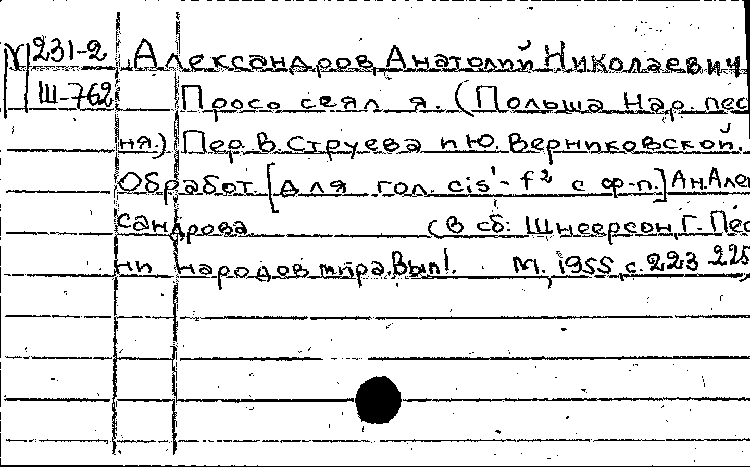 N 231-2 Александров, Анатолий Николаевич
Ш-762 Просо сеял я. (Польша Нар. пес
ня.) Пер. В. Струева и Ю. Верниковской.
Обработ. [для гол. cis¹- f² с ф-п.] Ан. Алек
сандрова (В сб: Шнеерсон, Г. Пес
ни народов мира. Вып I. М., 1955, с. 223 225